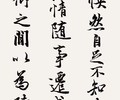 快然自足不知
情随事遷
俯之間以為